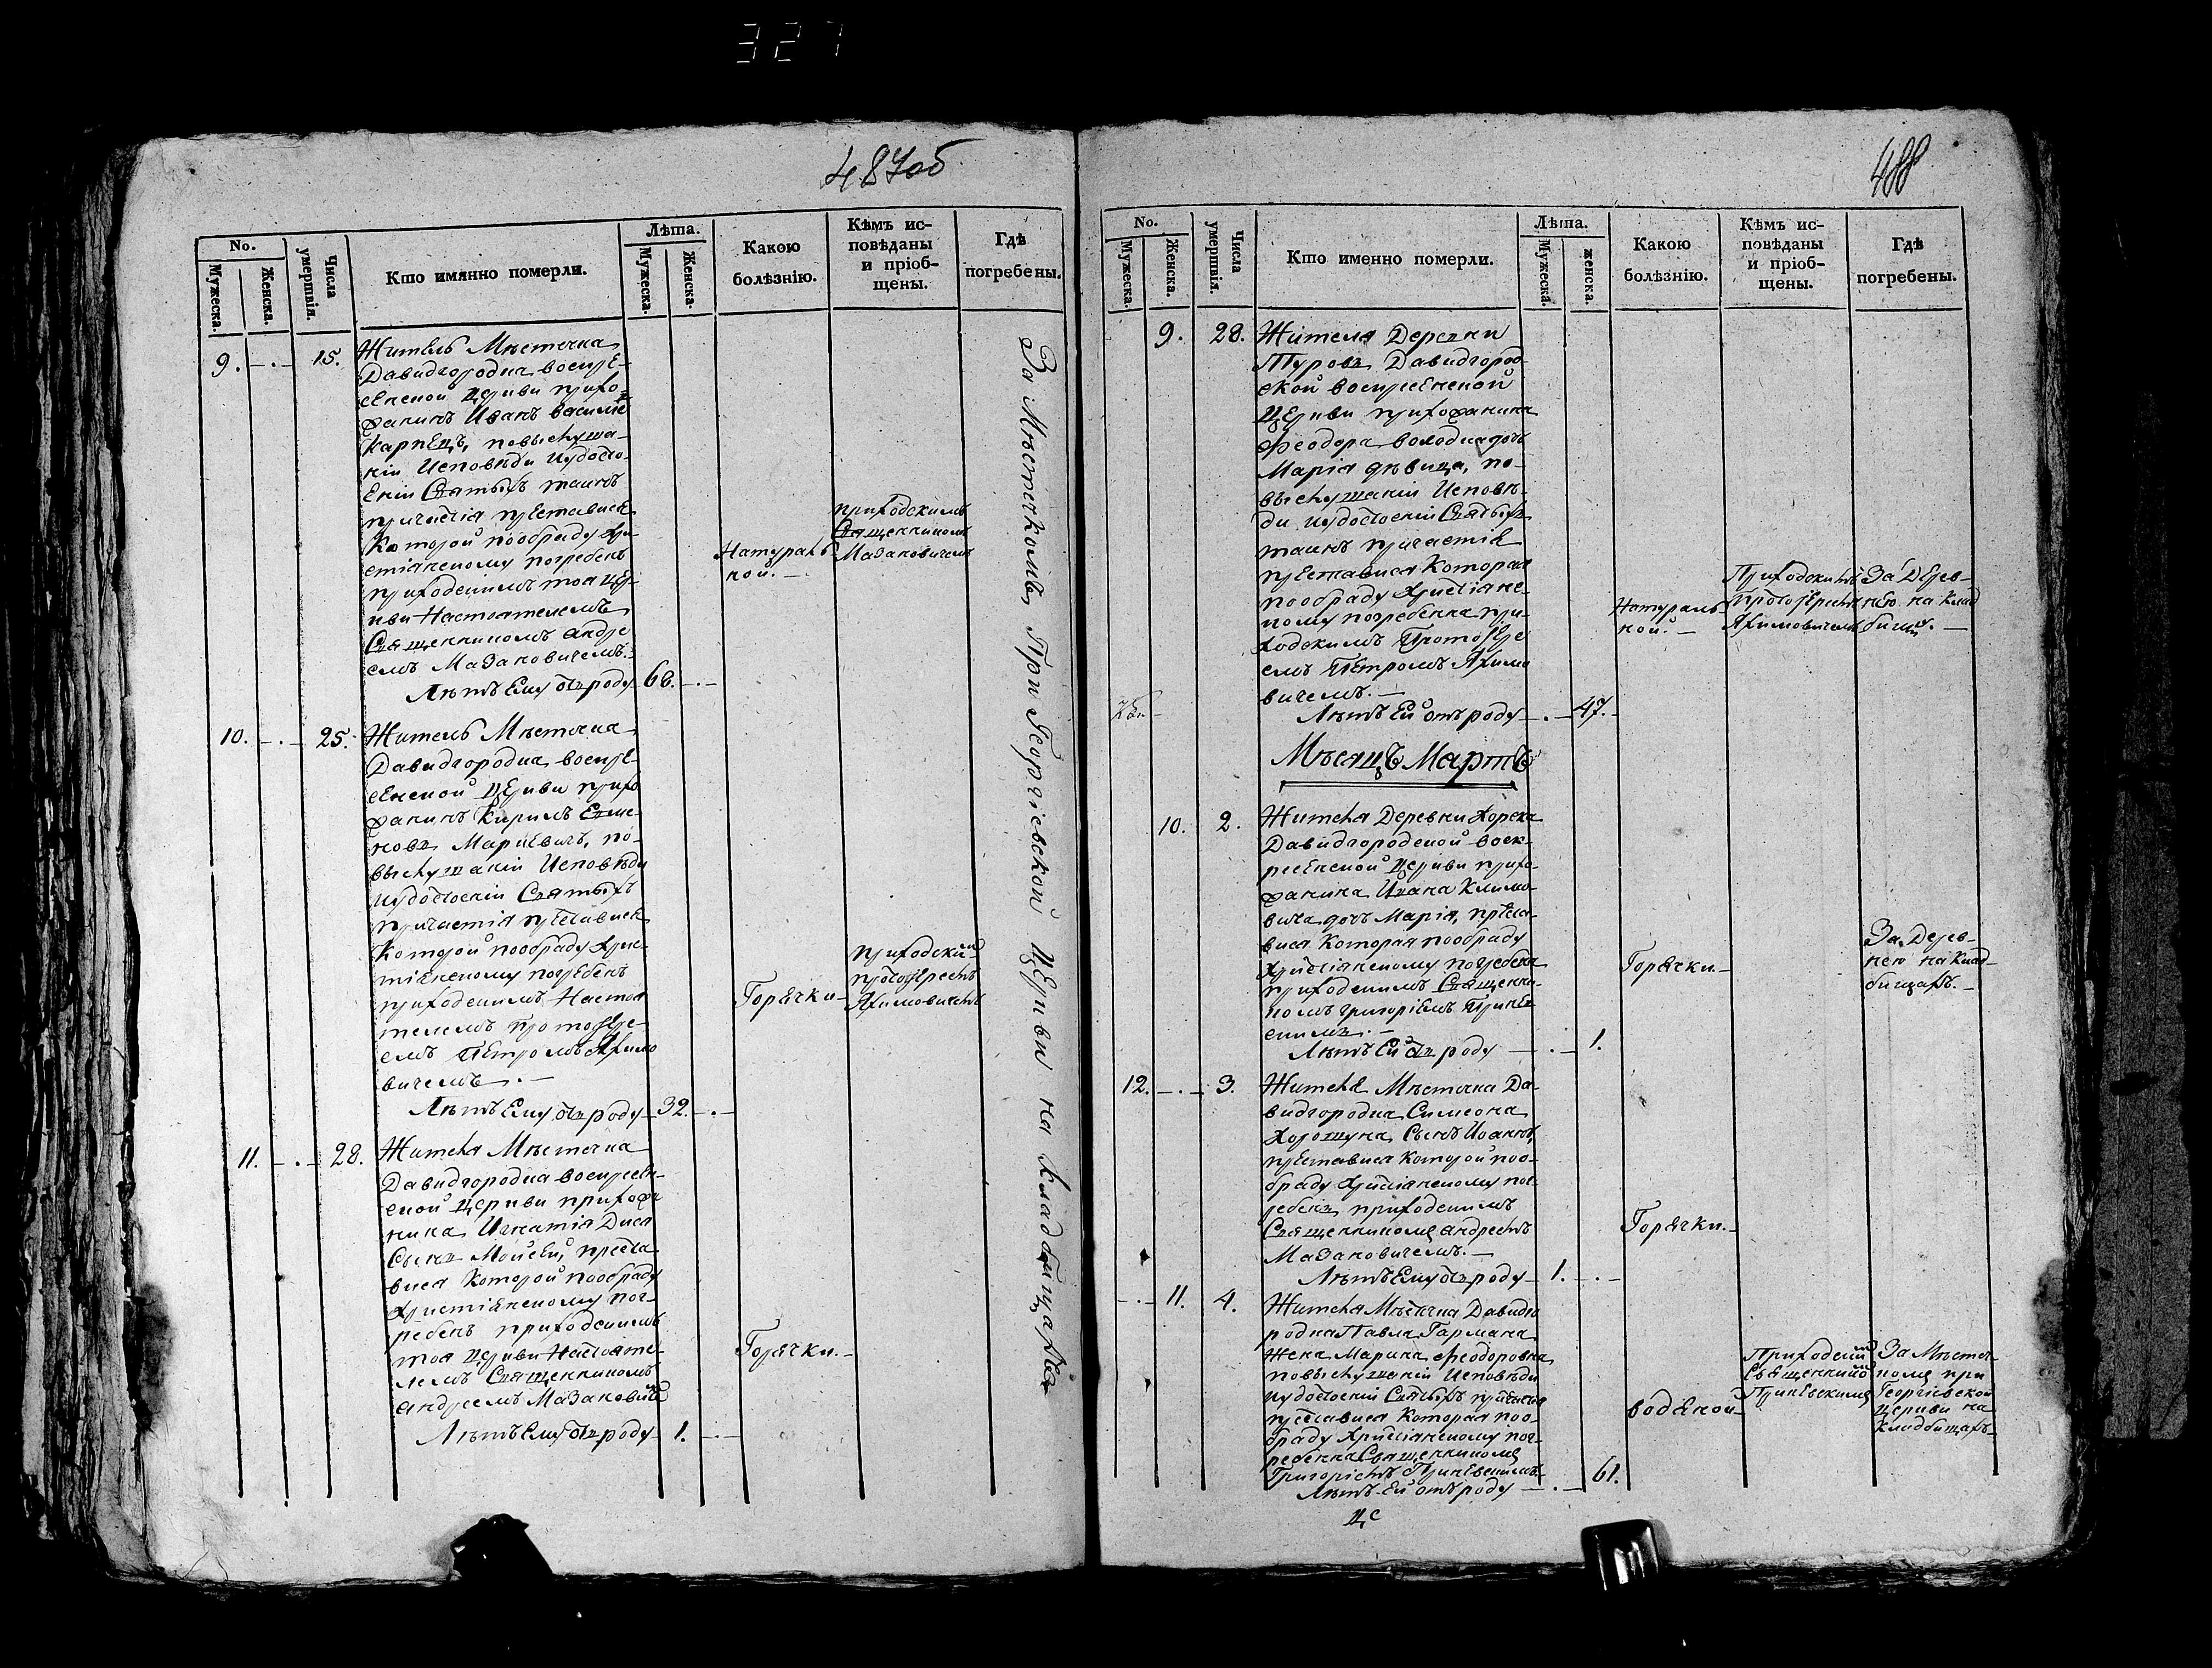 327
487об
No.
Мужеска.
Женска.
Числа умертвія.
Кто имянно померли.
Лѣта.
Мужеска.
Женска.
Какою
болѣзнію.
Кѣмъ ис-
повѣданы
и пріоб-
щены.
Гдѣ
погребены.
9. —.— 15.
Житель Мѣстечка
Давидгородка воскре-
сенской Церкви прихо-
жанинъ Иванъ Василіе
Карпецъ, повыслуша-
ніи Исповѣди иудосто-
еніи Святыхъ таинъ
причастія преставися
Которой пообряду Хри-
стіанскому погребенъ
приходскимъ тоя Цер-
кви Настоятелемъ
Священникомъ андре
емъ Мазановичемъ.
Лѣтъ Ему отъ роду 68. —.—
Натураль
ной. —
приходскимъ
Священникомъ
Мазановичемъ
За Мѣстечкомъ При Георгіевской Церкви на Кладбищахъ
10. —.— 25.
Житель Мѣстечка
Давидгородка воскре-
сенской Церкви прихо
жанинъ Кирилъ
Маркевичъ, по-
выслушаніи Исповѣди
иудостоеніи Святыхъ
причастія преставися
Которой пообряду Хрис-
тіанскому погребенъ
приходскимъ Настоя
телемъ протоіере-
емъ Петромъ Якимо
вичемъ. —
Лѣтъ Ему отъ роду 32. —.—
Горячки —
приходским
протоіереемъ
Якимовичемъ
11. —.— 28.
Жителя Мѣстечка
Давидгородка воскресен-
ской Церкви прихожа
нина Игнатія
Сынъ Мойсей, преста
вися Которой пообряду
Христіанскому пог-
ребенъ приходскимъ
тоя Церкви Настояте-
лемъ Священникомъ
андреемъ Мазанович
Лѣтъ Ему отъ роду 1. —.—
Горячки. —
488
No.
Мужеска.
Женска.
Числа умертвія.
Кто именно померли.
Лѣта.
Мужеска.
женска.
Какою
болѣзнію.
Кѣмъ ис-
повѣданы
и пріоб-
щены.
Гдѣ
погребены.
9. 28.
Жителя Деревни
Туровъ Давидгород-
ской воскресенской
Церкви прихожанина
Феодора володка дочь
Марія дѣвица, по-
выслушаніи Исповѣ-
ди иудостоеніи Святыхъ
таинъ причастія
преставися Которая
пообряду Христіанс-
кому погребенна при-
ходскимъ Протоіере
емъ Петромъ Якимо
вичемъ. —
Лѣтъ Ей отъ роду —.— 47. —
Натураль-
ной. —
Приходскимъ
протоіереемъ
Якимовичемъ
За Дерев-
нею на Клад
бищ. —
Мѣсяцъ Мартъ
10. 2.
Жителя Деревни Хорска
Давидгородской воск-
ресенской Церкви прихо-
жанина Ивана Климо-
вича дочь Марія, преста-
вися Которая пообряду
Христіанскому погребена
приходскимъ Священни-
комъ григоріемъ
скимъ. —
Лѣтъ Ей отъ роду —.— 1.
Горячки. —
За Дерев-
нею на Клад-
бищахъ. —
12. —.— 3.
Жителя Мѣстечка Да-
видгородка Симеона
Хорошуна Сынъ Иоаннъ,
преставися Которой поо-
бряду Христіанскому пог-
ребенъ приходскимъ
Священникомъ андреемъ
Мазановичемъ. —
Лѣтъ Ему отъ роду — 1. —.—
Горячки. —
—.— 11. 4.
Жителя Мѣстечка Давидго
родка Павла Гармана
Жена Марина Феодоровна
повыслушаніи Исповѣди
иудостоеніи Святыхъ причастія
преставися Которая поо-
бряду Христіанскому пог-
ребенна Священникомъ
Григоріемъ
Лѣтъ Ей отъ роду —.— 61.
водяной —
Приходским
Священником
За Мѣстеч-
комъ при
Георгіевской
Церкви на
Кладбищахъ